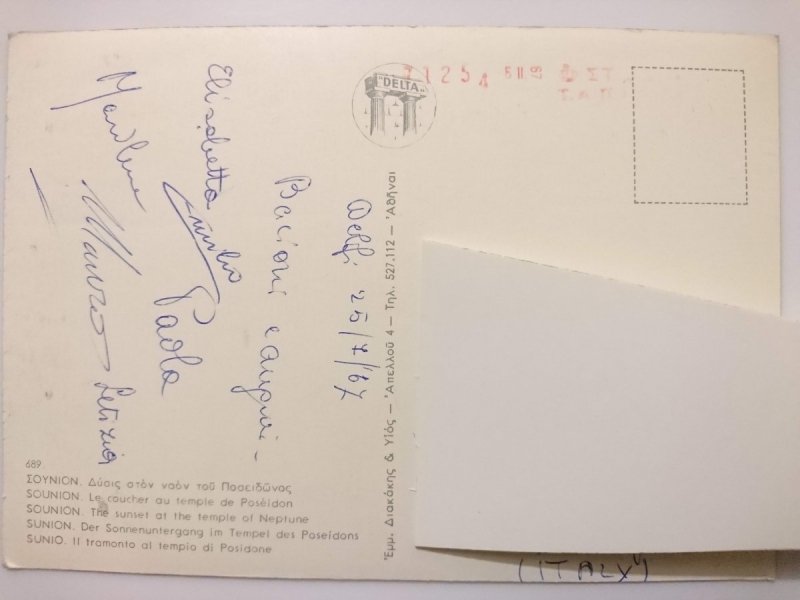 Delfi 25/7/67
Bacioni e auguri -
Elisabetta
Emilio
Paola
Mauro
Letizia
689.
ΣΟΥΝΙΟΝ. Δύσις στόν ναόν τοῦ Ποσειδῶνος
SOUNION. Le coucher au temple de Poséidon
SOUNION. The sunset at the temple of Neptune
SUNION. Der Sonnenuntergang im Tempel des Poseidons
SUNIO. Il tramonto al tempio di Posidone
"DELTA"
Ἐμμ. Διακάκης & Υἱός — Ἀπελλοῦ 4 — Τηλ. 527.112 — Ἀθῆναι
11254
(ITALY)